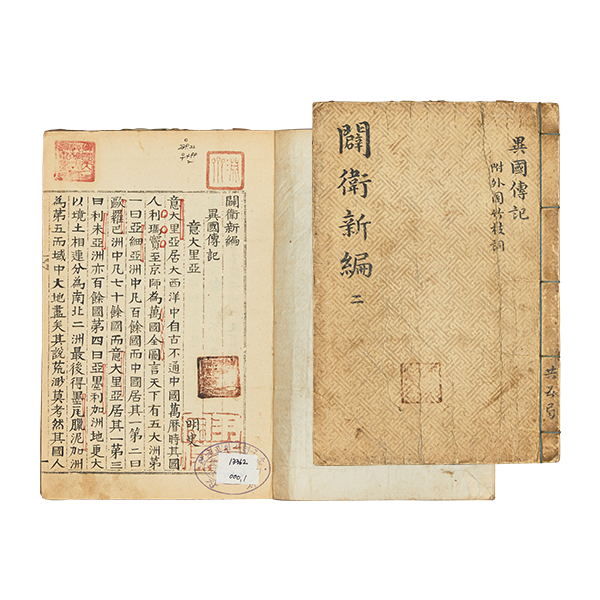 闢衛新編
二
異國傳記
附外國竹枝詞
闢衛新編
異國傳記
意大里亞
明史
意大里亞居大西洋中自古不通中國萬曆時其國
人利瑪竇至京師為萬國全圖言天下有五大洲第
一曰亞細亞洲中凡百餘國而中國居其一第二曰
歐羅巴洲中凡七十餘國而意大里亞居其一第三
曰利未亞洲亦百餘國第四曰亞墨利加洲地更大
以境土相連分為南北二洲最後得墨瓦臘泥加洲
為第五而域中大地盡矣其說荒渺莫考然其國人
000.1